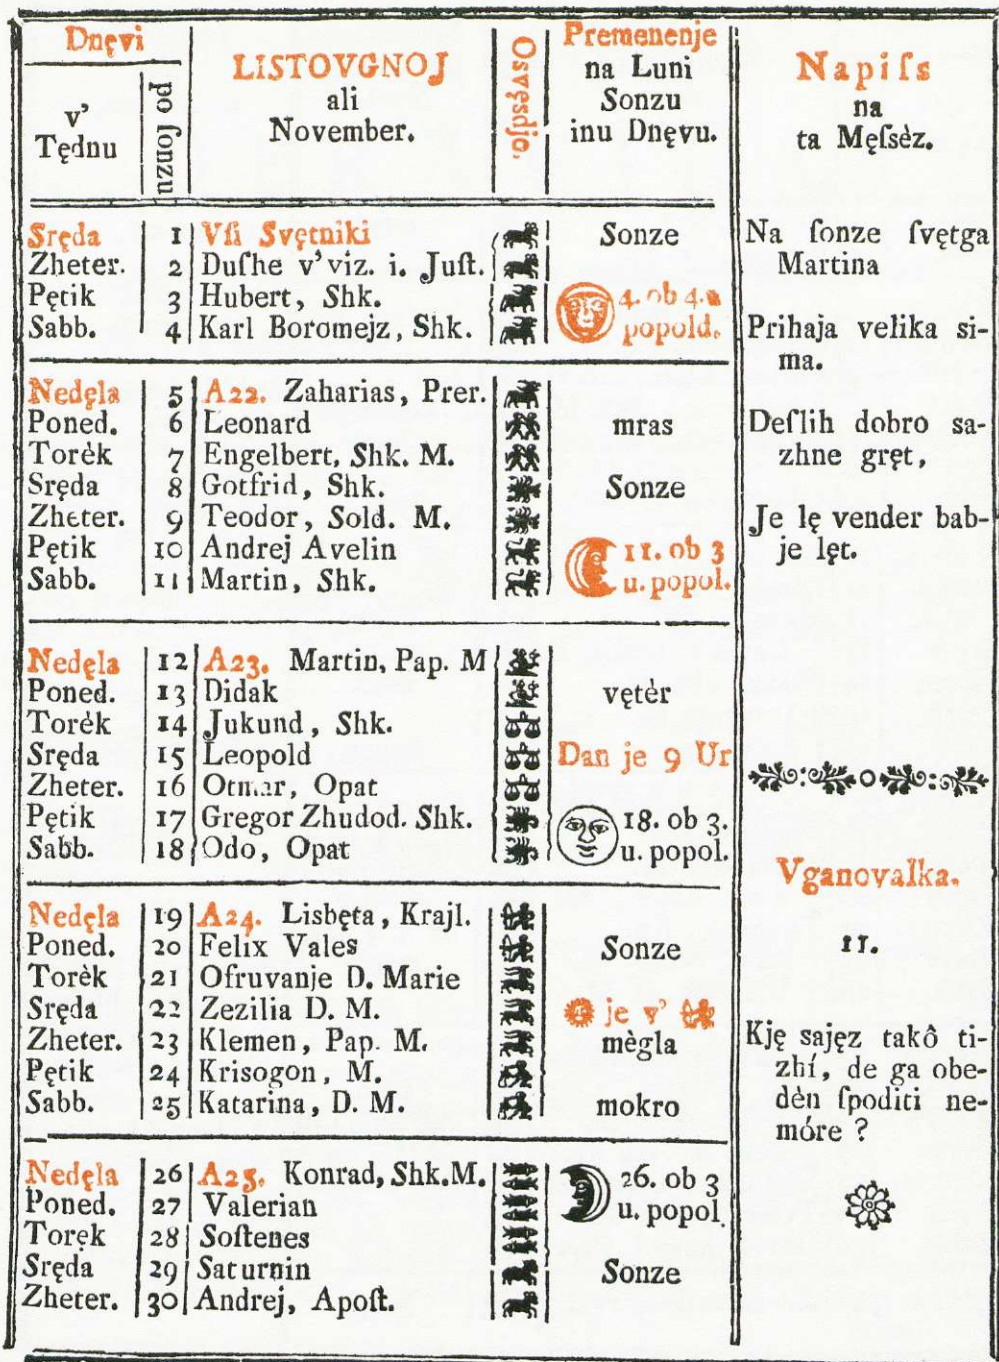 Dnęvi
v'
Tędnu
po ſonzu
LISTOVGNOJ
ali
November.
Osvęsdjo.
Premenenje
na Luni
Sonzu
inu Dnęvu.
Napiſs
na
ta Męſsèz.
Sręda 1 Vſi Svętniki Sonze
Zheter. 2 Duſhe v' viz. i. Juſt.
Pętik 3 Hubert, Shk. 4. ob 4. u
Sabb. 4 Karl Boromejz, Shk. popold.
Nedęla 5 A22. Zaharias, Prer.
Poned. 6 Leonard mras
Torèk 7 Engelbert, Shk. M.
Sręda 8 Gotfrid, Shk. Sonze
Zheter. 9 Teodor, Sold. M.
Pętik 10 Andrej Avelin 11. ob 3
Sabb. 11 Martin, Shk. u. popol.
Nedęla 12 A23. Martin, Pap. M
Poned. 13 Didak vętèr
Torèk 14 Jukund, Shk.
Sręda 15 Leopold Dan je 9 Ur
Zheter. 16 Otmar, Opat
Pętik 17 Gregor Zhudod. Shk. 18. ob 3.
Sabb. 18 Odo, Opat u. popol.
Nedęla 19 A24. Lisbęta, Krajl.
Poned. 20 Felix Vales Sonze
Torèk 21 Ofruvanje D. Marie
Sręda 22 Zezilia D. M. je v'
Zheter. 23 Klemen, Pap. M. mègla
Pętik 24 Krisogon, M.
Sabb. 25 Katarina, D. M. mokro
Nedęla 26 A25. Konrad, Shk. M. 26. ob 3
Poned. 27 Valerian u. popol.
Toręk 28 Soſtenes
Sręda 29 Saturnin Sonze
Zheter. 30 Andrej, Apoſt.
Na ſonze ſvętga
Martina
Prihaja velika si-
ma.
Deſlih dobro sa-
zhne gręt,
Je lę vender bab-
je lęt.
Vganovalka.
11.
Kję sajęz takô ti-
zhí, de ga obe-
dèn ſpoditi ne-
móre ?